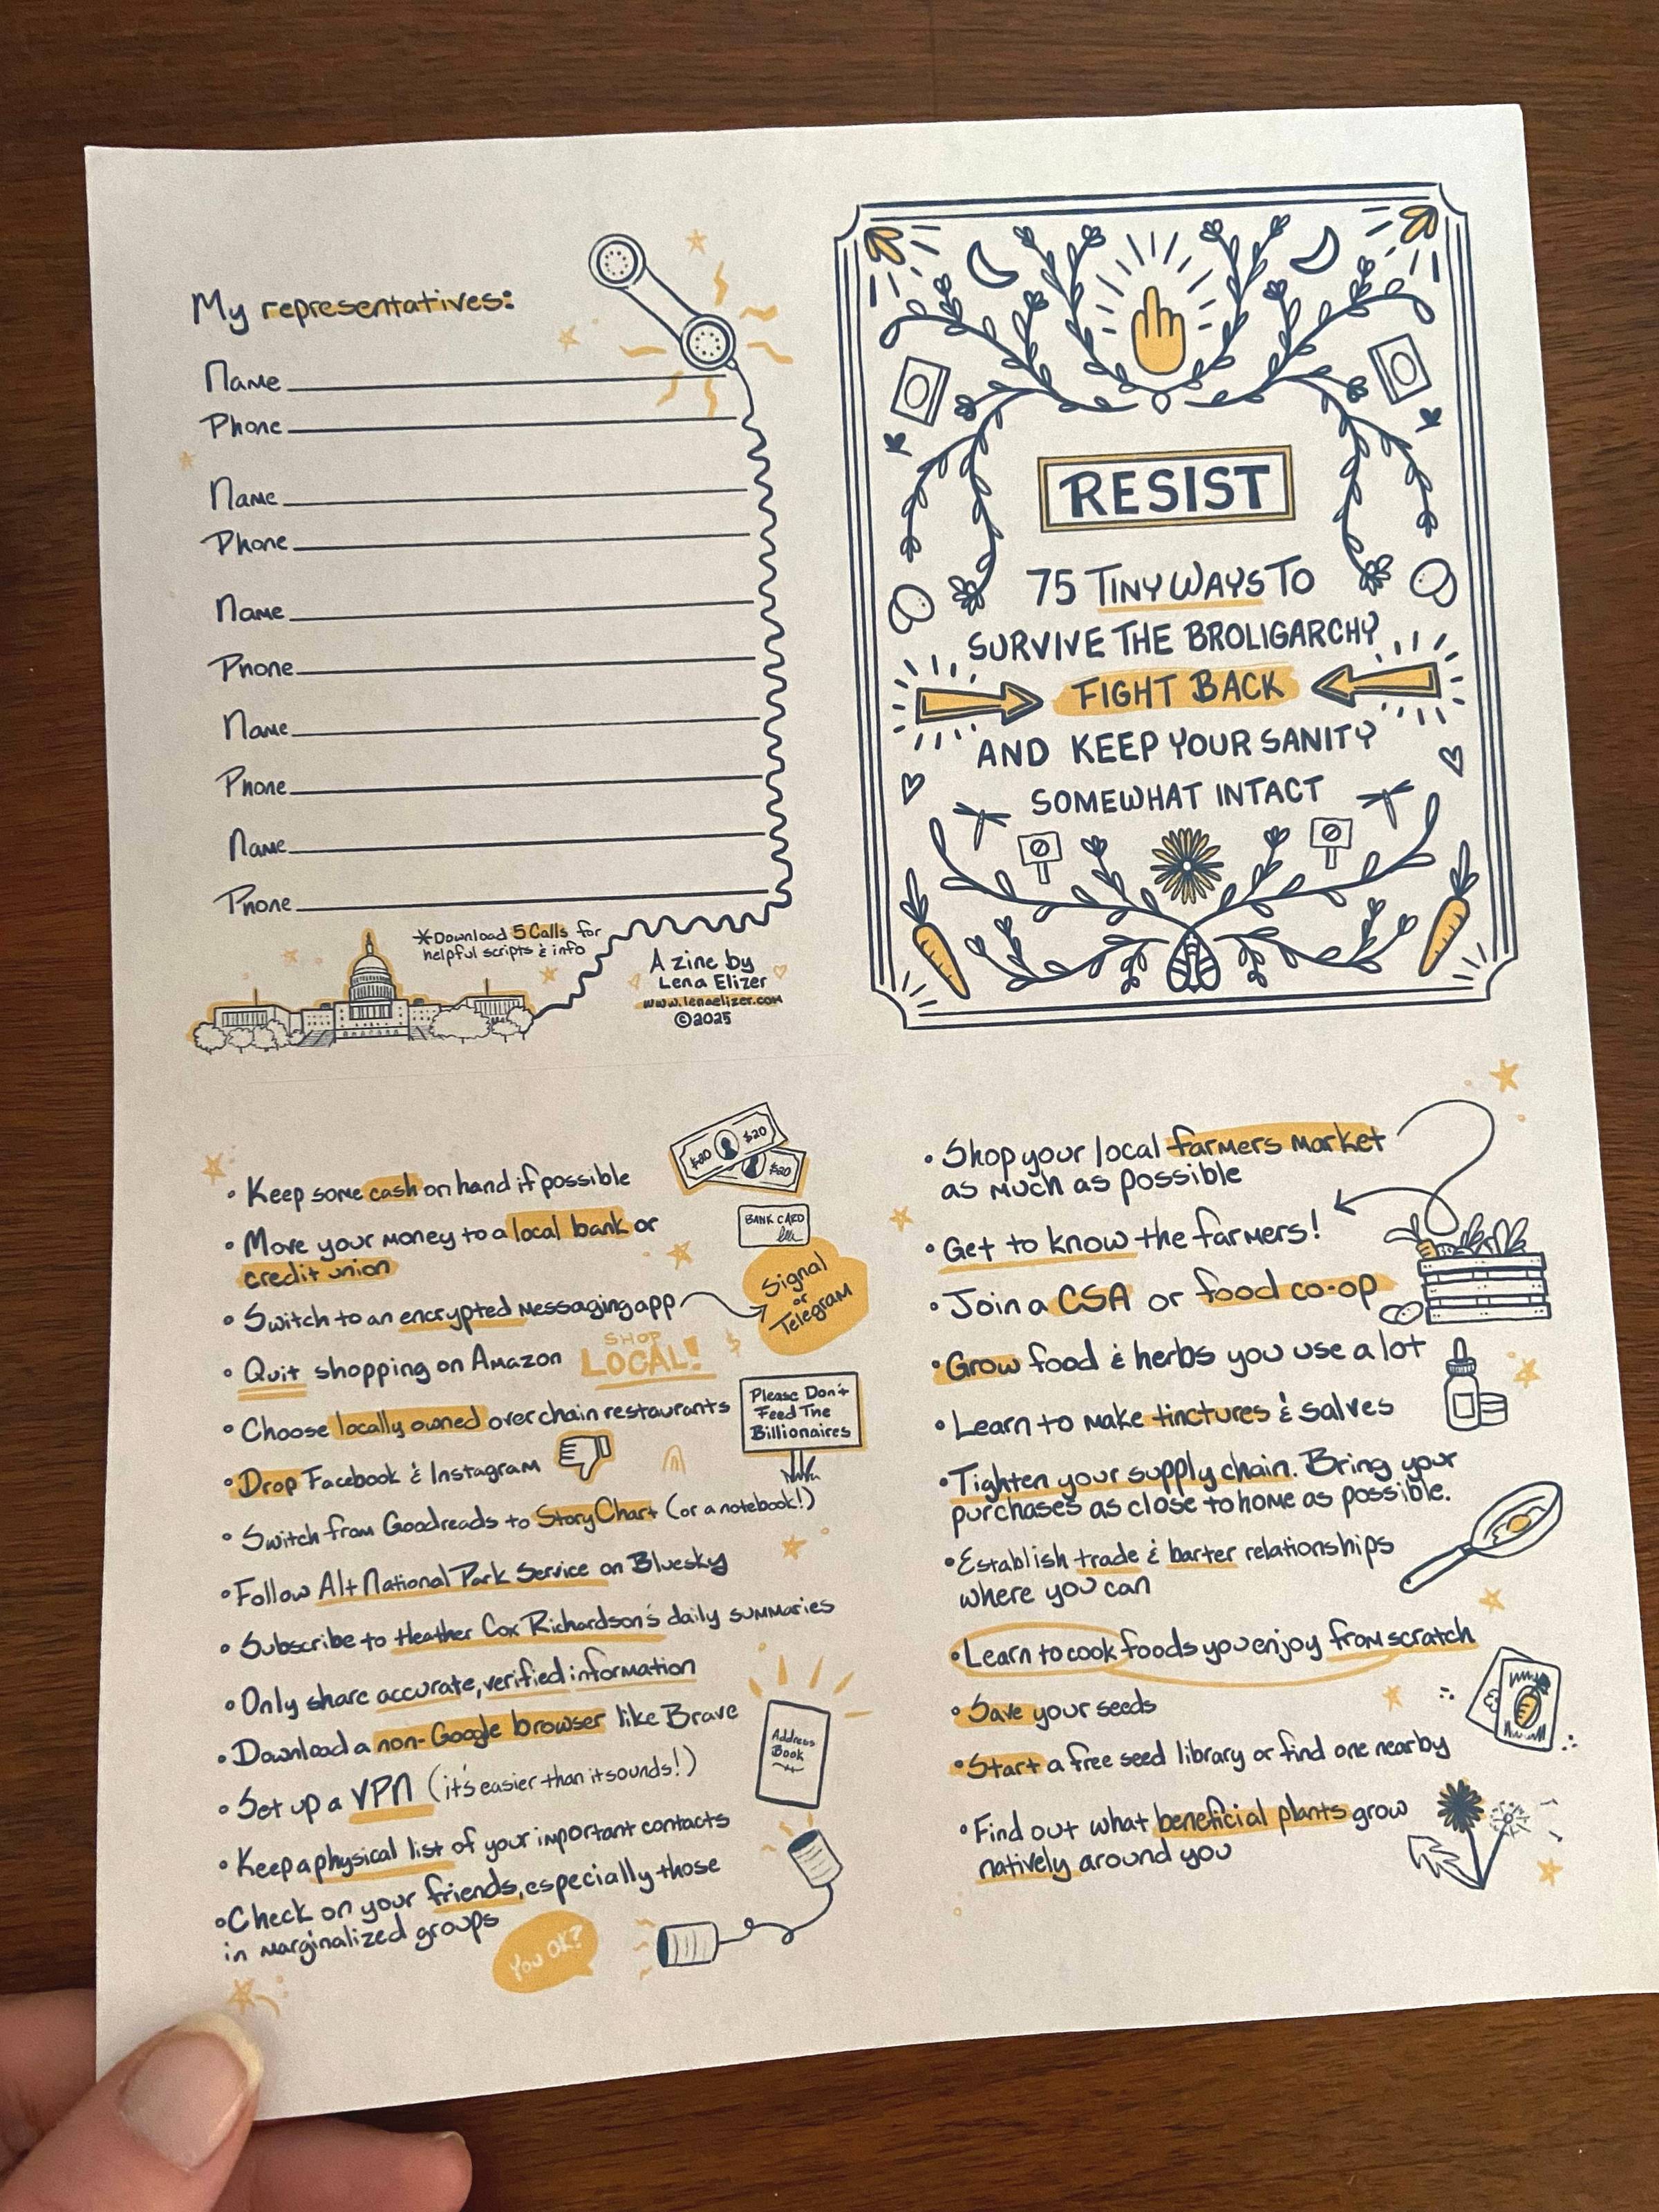 My representatives:
Name
Phone
Name
Phone
Name
Phone
Name
Phone
Name
Phone
*Download 5 Calls for
helpful scripts & info
A zine by
Lena Elizer
www.lenaelizer.com
©2025
RESIST
75 TINY WAYS TO
SURVIVE THE BROLIGARCHY
FIGHT BACK
AND KEEP YOUR SANITY
SOMEWHAT INTACT
$20
$20
$20
• Keep some cash on hand if possible
• Move your money to a local bank or
credit union
BANK CARD
• Switch to an encrypted messaging app
Signal
or
Telegram
• Quit shopping on Amazon
SHOP
LOCAL!
$
• Choose locally owned over chain restaurants
Please Don't
Feed The
Billionaires
• Drop Facebook & Instagram
• Switch from Goodreads to StoryChart (or a notebook!)
• Follow Alt National Park Service on Bluesky
• Subscribe to Heather Cox Richardson's daily summaries
• Only share accurate, verified information
• Download a non-Google browser like Brave
• Set up a VPN (it's easier than it sounds!)
Address
Book
• Keep a physical list of your important contacts
• Check on your friends, especially those
in marginalized groups
You OK?
• Shop your local farmers market
as much as possible
• Get to know the farmers!
• Join a CSA or food co-op
• Grow food & herbs you use a lot
• Learn to make tinctures & salves
• Tighten your supply chain. Bring your
purchases as close to home as possible.
• Establish trade & barter relationships
where you can
• Learn to cook foods you enjoy from scratch
• Save your seeds
• Start a free seed library or find one nearby
• Find out what beneficial plants grow
natively around you